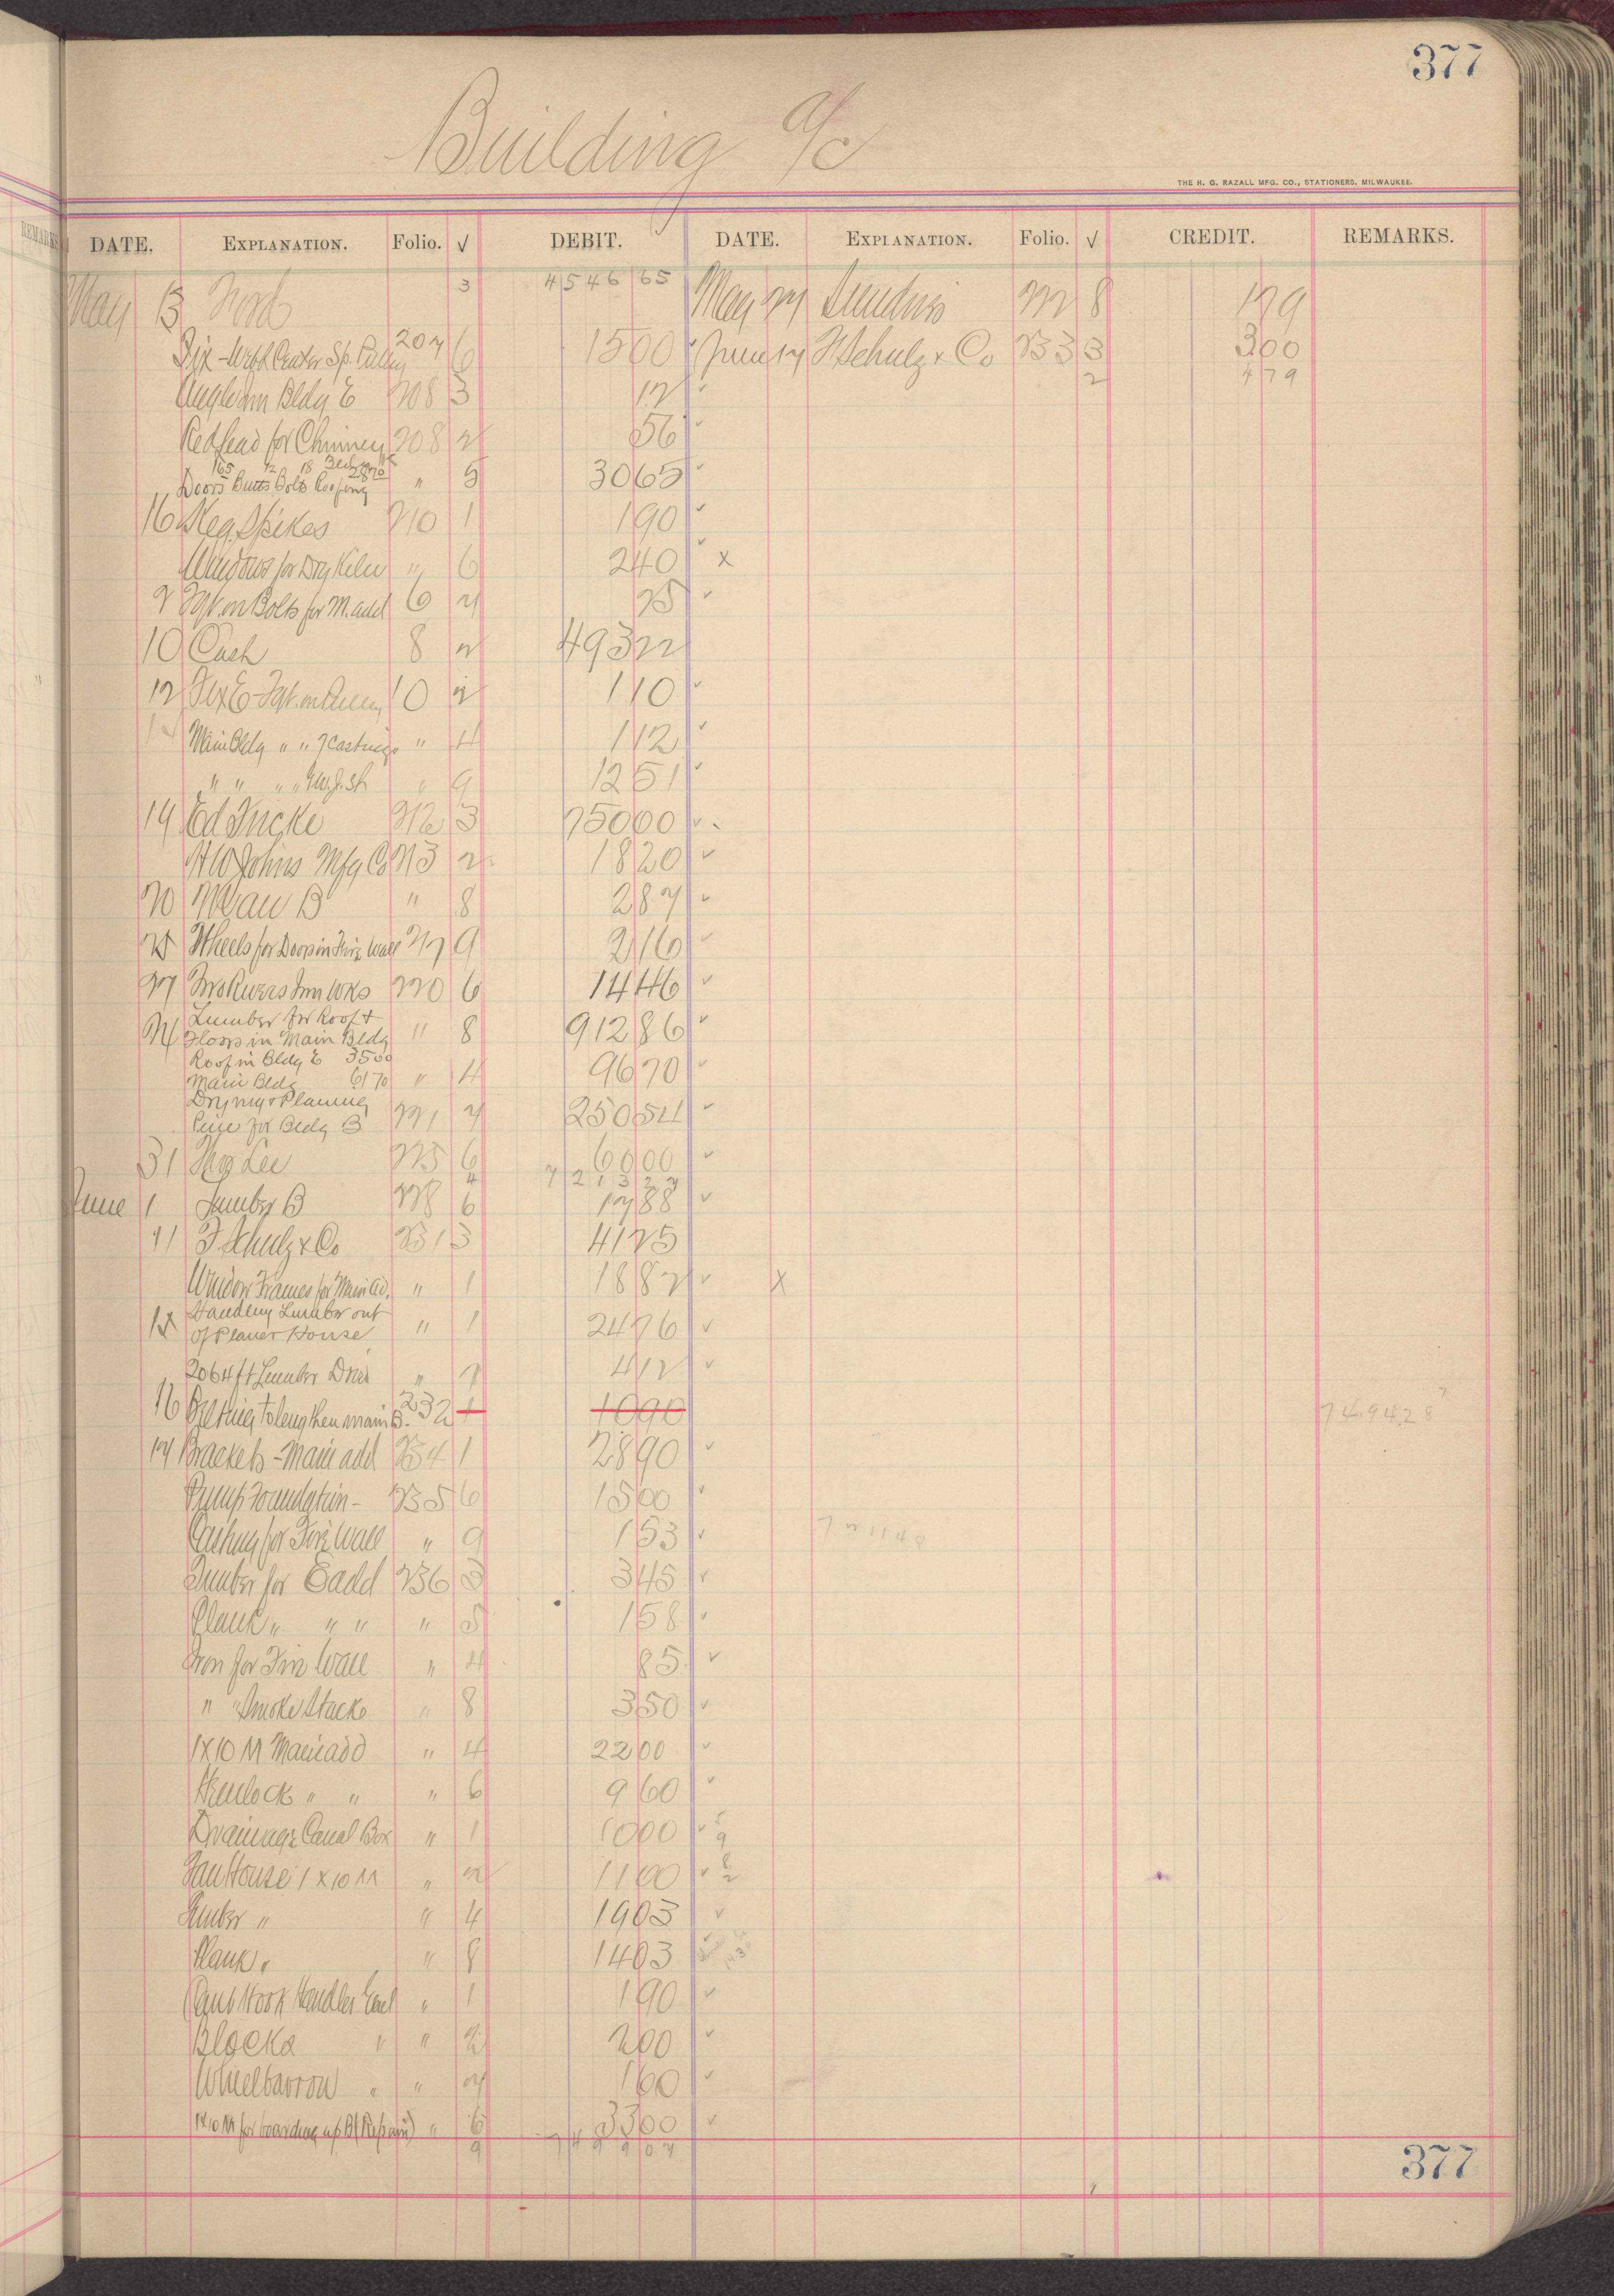 377
Building a/c
THE H. G. RAZALL MFG. CO., STATIONERS, MILWAUKEE.
REMARKS
DATE. EXPLANATION. Folio. √ DEBIT. DATE. EXPLANATION. Folio. √ CREDIT. REMARKS.
May 13 3 4546 65 May 27 Sundries 222 8 1 79
Center Sp. Pulley 207 6 15 00 ✓ June 17 F Schulz & Co 233 3 3 00
2 4 79
Angle Iron Bldg E 208 3 12 ✓
Red Lead for Chimney 208 2 56 ✓
165 12 18 2870
Doors Butts Bolts Roofing " 5 30 65 ✓
16 Keg Spikes 210 1 1 90 ✓
Windows for Dry Kiln " 6 2 40 ✓ x
Frt. on Bolts for M. add 6 7 25 ✓
10 Cash 8 2 493 22
12 Frt. on 10 2 1 10 ✓
Main Bldg " " 7 Castings " 4 1 12 ✓
" " " " " 9 12 51 ✓
19 Ed Fricke 212 3 750 00 ✓
H W Johns Mfg Co 213 2 18 20 ✓
20 B " 8 2 87 ✓
25 Wheels for Doors in Fire Wall 217 9 2 16 ✓
27 Two Rivers Iron Wks 220 6 14 46 ✓
Lumber for Roof &
Floors in Main Bldg " 8 912 86 ✓
Roof in Bldg E 3500
Main Bldg 6170 " 4 96 70 ✓
Drying & Planing
Pine for Bldg B 221 7 250 54 ✓
31 Lee 225 6 60 00 ✓
4 7213 27
June 1 Lumber B 228 6 17 88 ✓
11 F. Schulz & Co 231 3 41 25
Window Frames for Main Ad. " 1 18 87 ✓ x
Handling Lumber out
of Planer House " 1 24 76 ✓
2064 ft Lumber Dried " 7 4 12 ✓
16 Belting to lengthen main B. 232 1 10 90 7494.28
17 Brackets - Main add 234 1 28 90 ✓
Pump Foundation - 235 6 15 00 ✓
for Fire Wall " 9 1 53 ✓
Timber for E add 236 3 3 45 ✓
Plank " " " " 5 1 58 ✓
Iron for Fire Wall " 4 85 ✓
" " Smoke Stack " 8 3 50 ✓
1X10 M Main add " 4 22 00 ✓
Hemlock " " " 6 9 60 ✓
Drainage Canal Box " 1 10 00 ✓ 5 9
Fan House 1 X 10 M " 2 11 00 ✓ 8 2
Timber " " 4 19 03 ✓
Plank " " 8 14 03
Cant Hook Handles " 1 1 90 ✓
Blocks " " 2 2 00 ✓
Wheelbarrow " " 7 1 60 ✓
1X10 M for boarding up B (Repair) " 6 33 00 ✓
9 7499 07
377